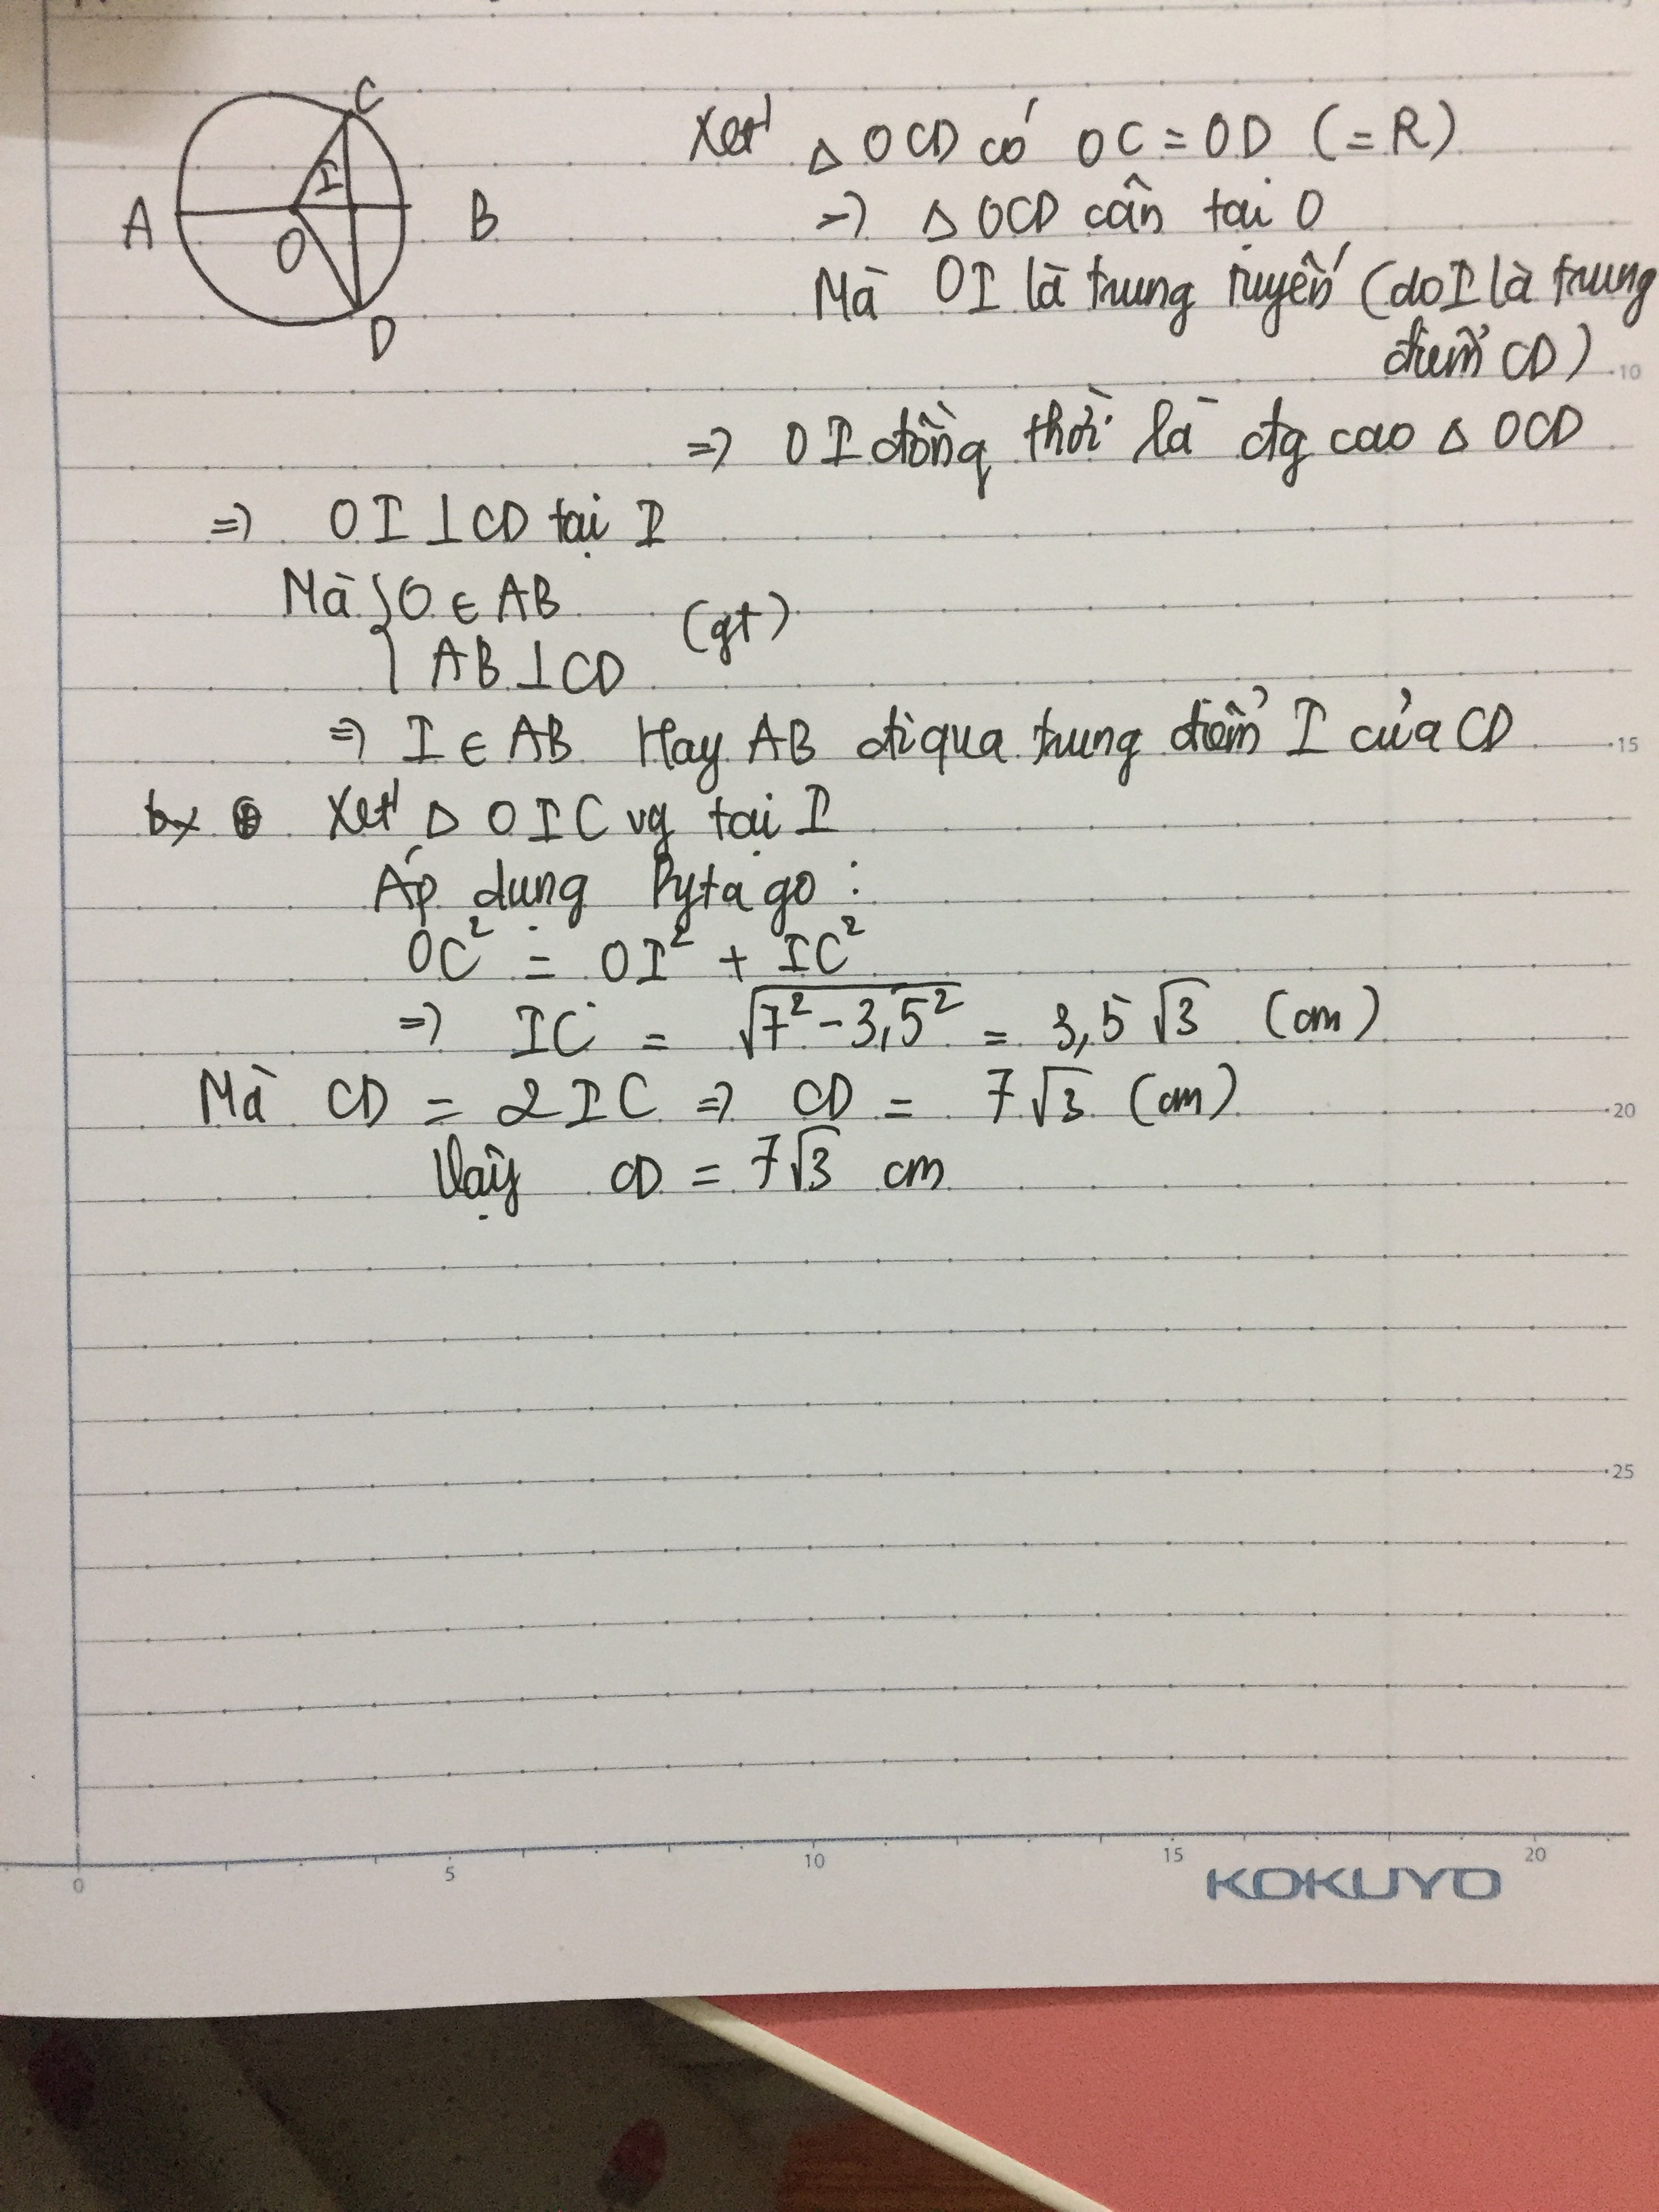 C
I
A
B
O
D
Xét △ OCD có OC = OD (= R)
=> △ OCD cân tại O
Mà OI là trung tuyến (do I là trung
điểm CD)
10
=> OI đồng thời là đtg cao △ OCD
=> OI ⊥ CD tại I
Mà { O ∈ AB
AB ⊥ CD (gt)
=> I ∈ AB Hay AB đi qua trung điểm I của CD
15
b, Xét △ OIC vg tại I
Áp dụng Pytago :
OC² = OI² + IC²
=> IC = √(7² - 3,5²) = 3,5 √3 (cm)
Mà CD = 2IC => CD = 7√3 (cm)
20
Vậy CD = 7√3 cm
25
0 5 10 15 20
KOKUYO